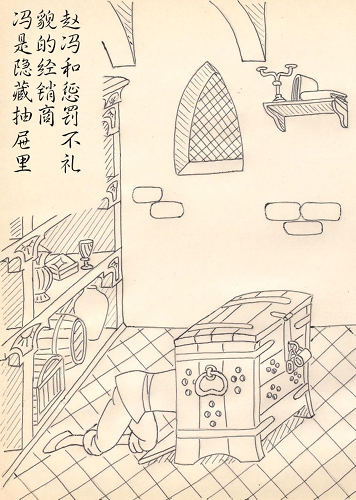 赵冯和惩罚不礼
貌的经销商
冯是隐藏抽屉里